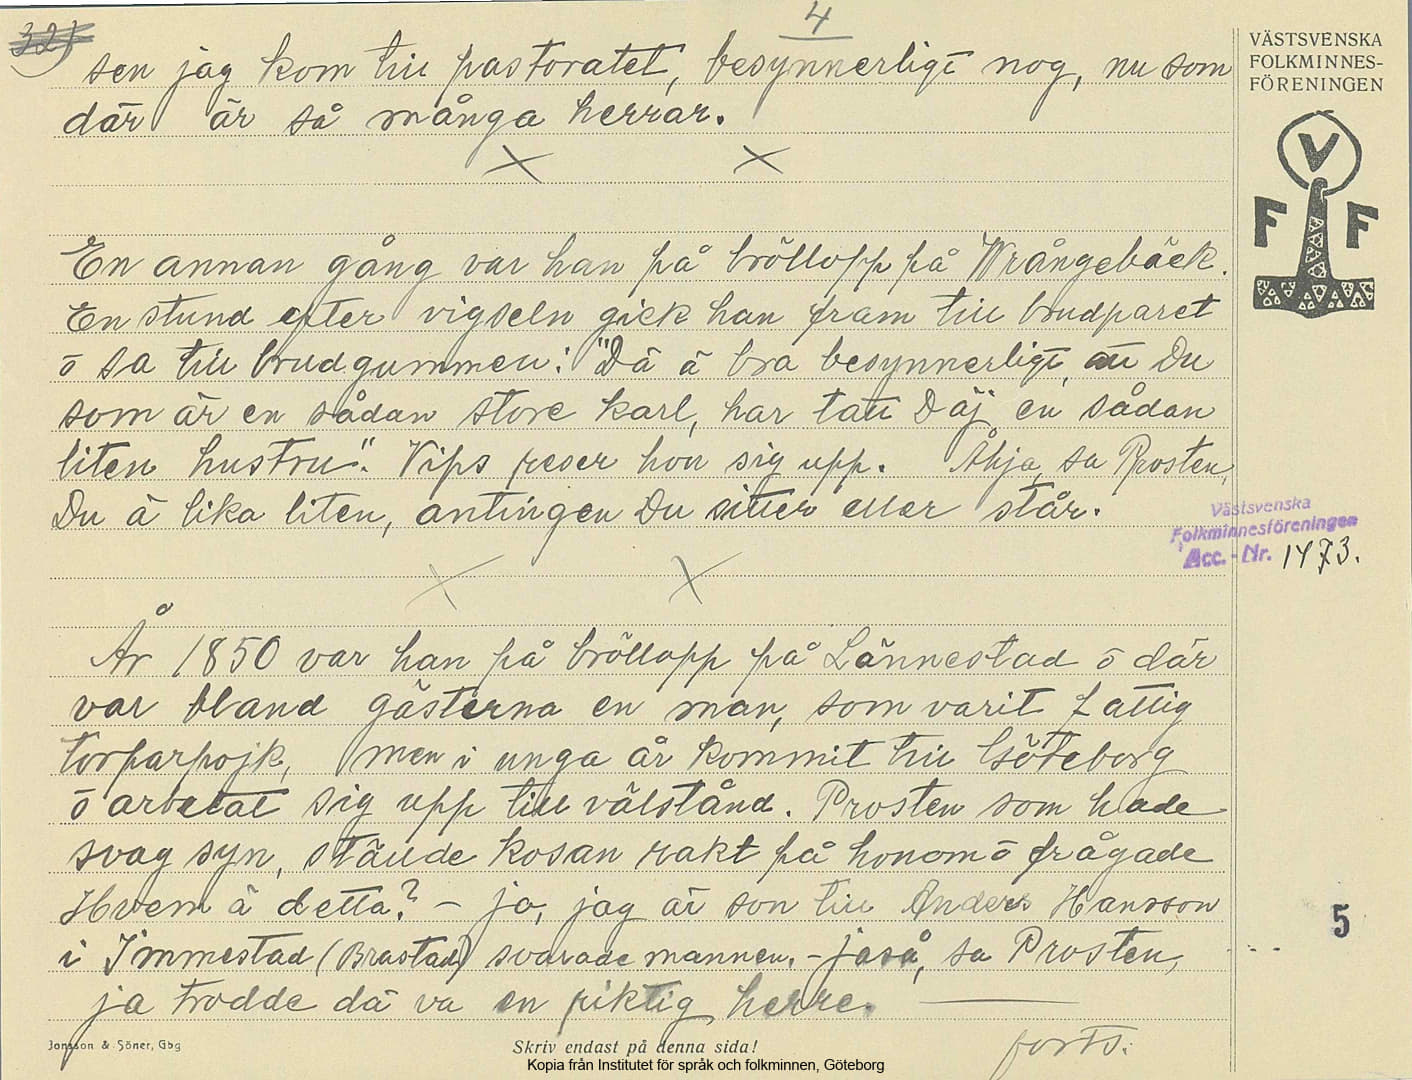 4
sen jag kom till pastoratet, besynnerligt nog, nu som
där är så många herrar.
En annan gång var han på bröllopp på Wrångebäck.
En stund efter vigseln gick han fram till brudparet
ō sa till brudgummen: "Dä ä bra besynnerligt, att Du
som är en sådan store karl, har tatt Däj en sådan
liten hustru". Vips reser hon sig upp. Åhja, sa Prosten,
Du ä lika liten, antingen Du sitter eller står.
År 1850 var han på bröllopp på Lännestad ō där
var bland gästerna en man, som varit fattig
torparpojk, men i unga år kommit till Göteborg
ō arbetat sig upp till välstånd. Prosten som hade
svag syn, stäude kosan rakt på honom ō frågade
Hvem ä detta? – jo, jag är son till Anders Hansson
i Immestad (Brastad) svarade mannen. – jaså, sa Prosten,
ja trodde dä va en riktig herre.
forts.
VÄSTSVENSKA
FOLKMINNES-
FÖRENINGEN
V
F F
Västsvenska
Folkminnesföreningen
Acc. - Nr. 1473.
5
Jonsson & Söner, Gbg
Skriv endast på denna sida!
Kopia från Institutet för språk och folkminnen, Göteborg